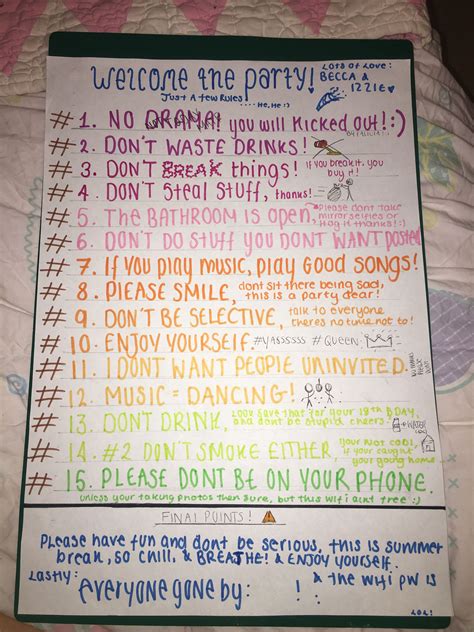 Welcome the Party!
Lots of Love:
BECCA &
IZZIE♡
Just A few Rules .... He, He :)
# 1. NO DRAMA! you will Kicked out! :)
# 2. DON'T WASTE DRINKS!
# 3. DON'T BREAK things! if you break it, you
buy it!
# 4. DON'T Steal STUFF, thanks!
# 5. THE BATHROOM IS open, please dont take
mirror selfies or
hog it thanks! :)
# 6. DON'T DO STUFF YOU DONT WANT POSTED
# 7. If YOU PLAY MUSIC, PLAY GOOD SONGS!
# 8. PLEASE SMILE, dont sit there being sad,
this is a party dear!
# 9. DON'T BE SELECTIVE, talk to everyone
theres no time not to!
# 10. ENJOY YOURSELF. #YASSSSSS #QUEEN
# 11. I DONT WANT PEOPLE UNINVITED.
# 12. MUSIC = DANCING!
# 13. DON'T DRINK, LOOK save that for your 18th BDAY,
and dont be stupid cheers.
WATER
# 14. #2 DON'T SMOKE EITHER, your NOT COOL,
if your caught
your going home
# 15. PLEASE DONT BE ON YOUR PHONE.
unless your taking photos then sure, but this wifi aint free :)
FINAL POINTS!
Please have fun and dont be serious, this is summer
break, so chill, & BREATHE! & ENJOY yourself.
Lastly: & the wifi pw is
everyone gone by: ! :
LOL!